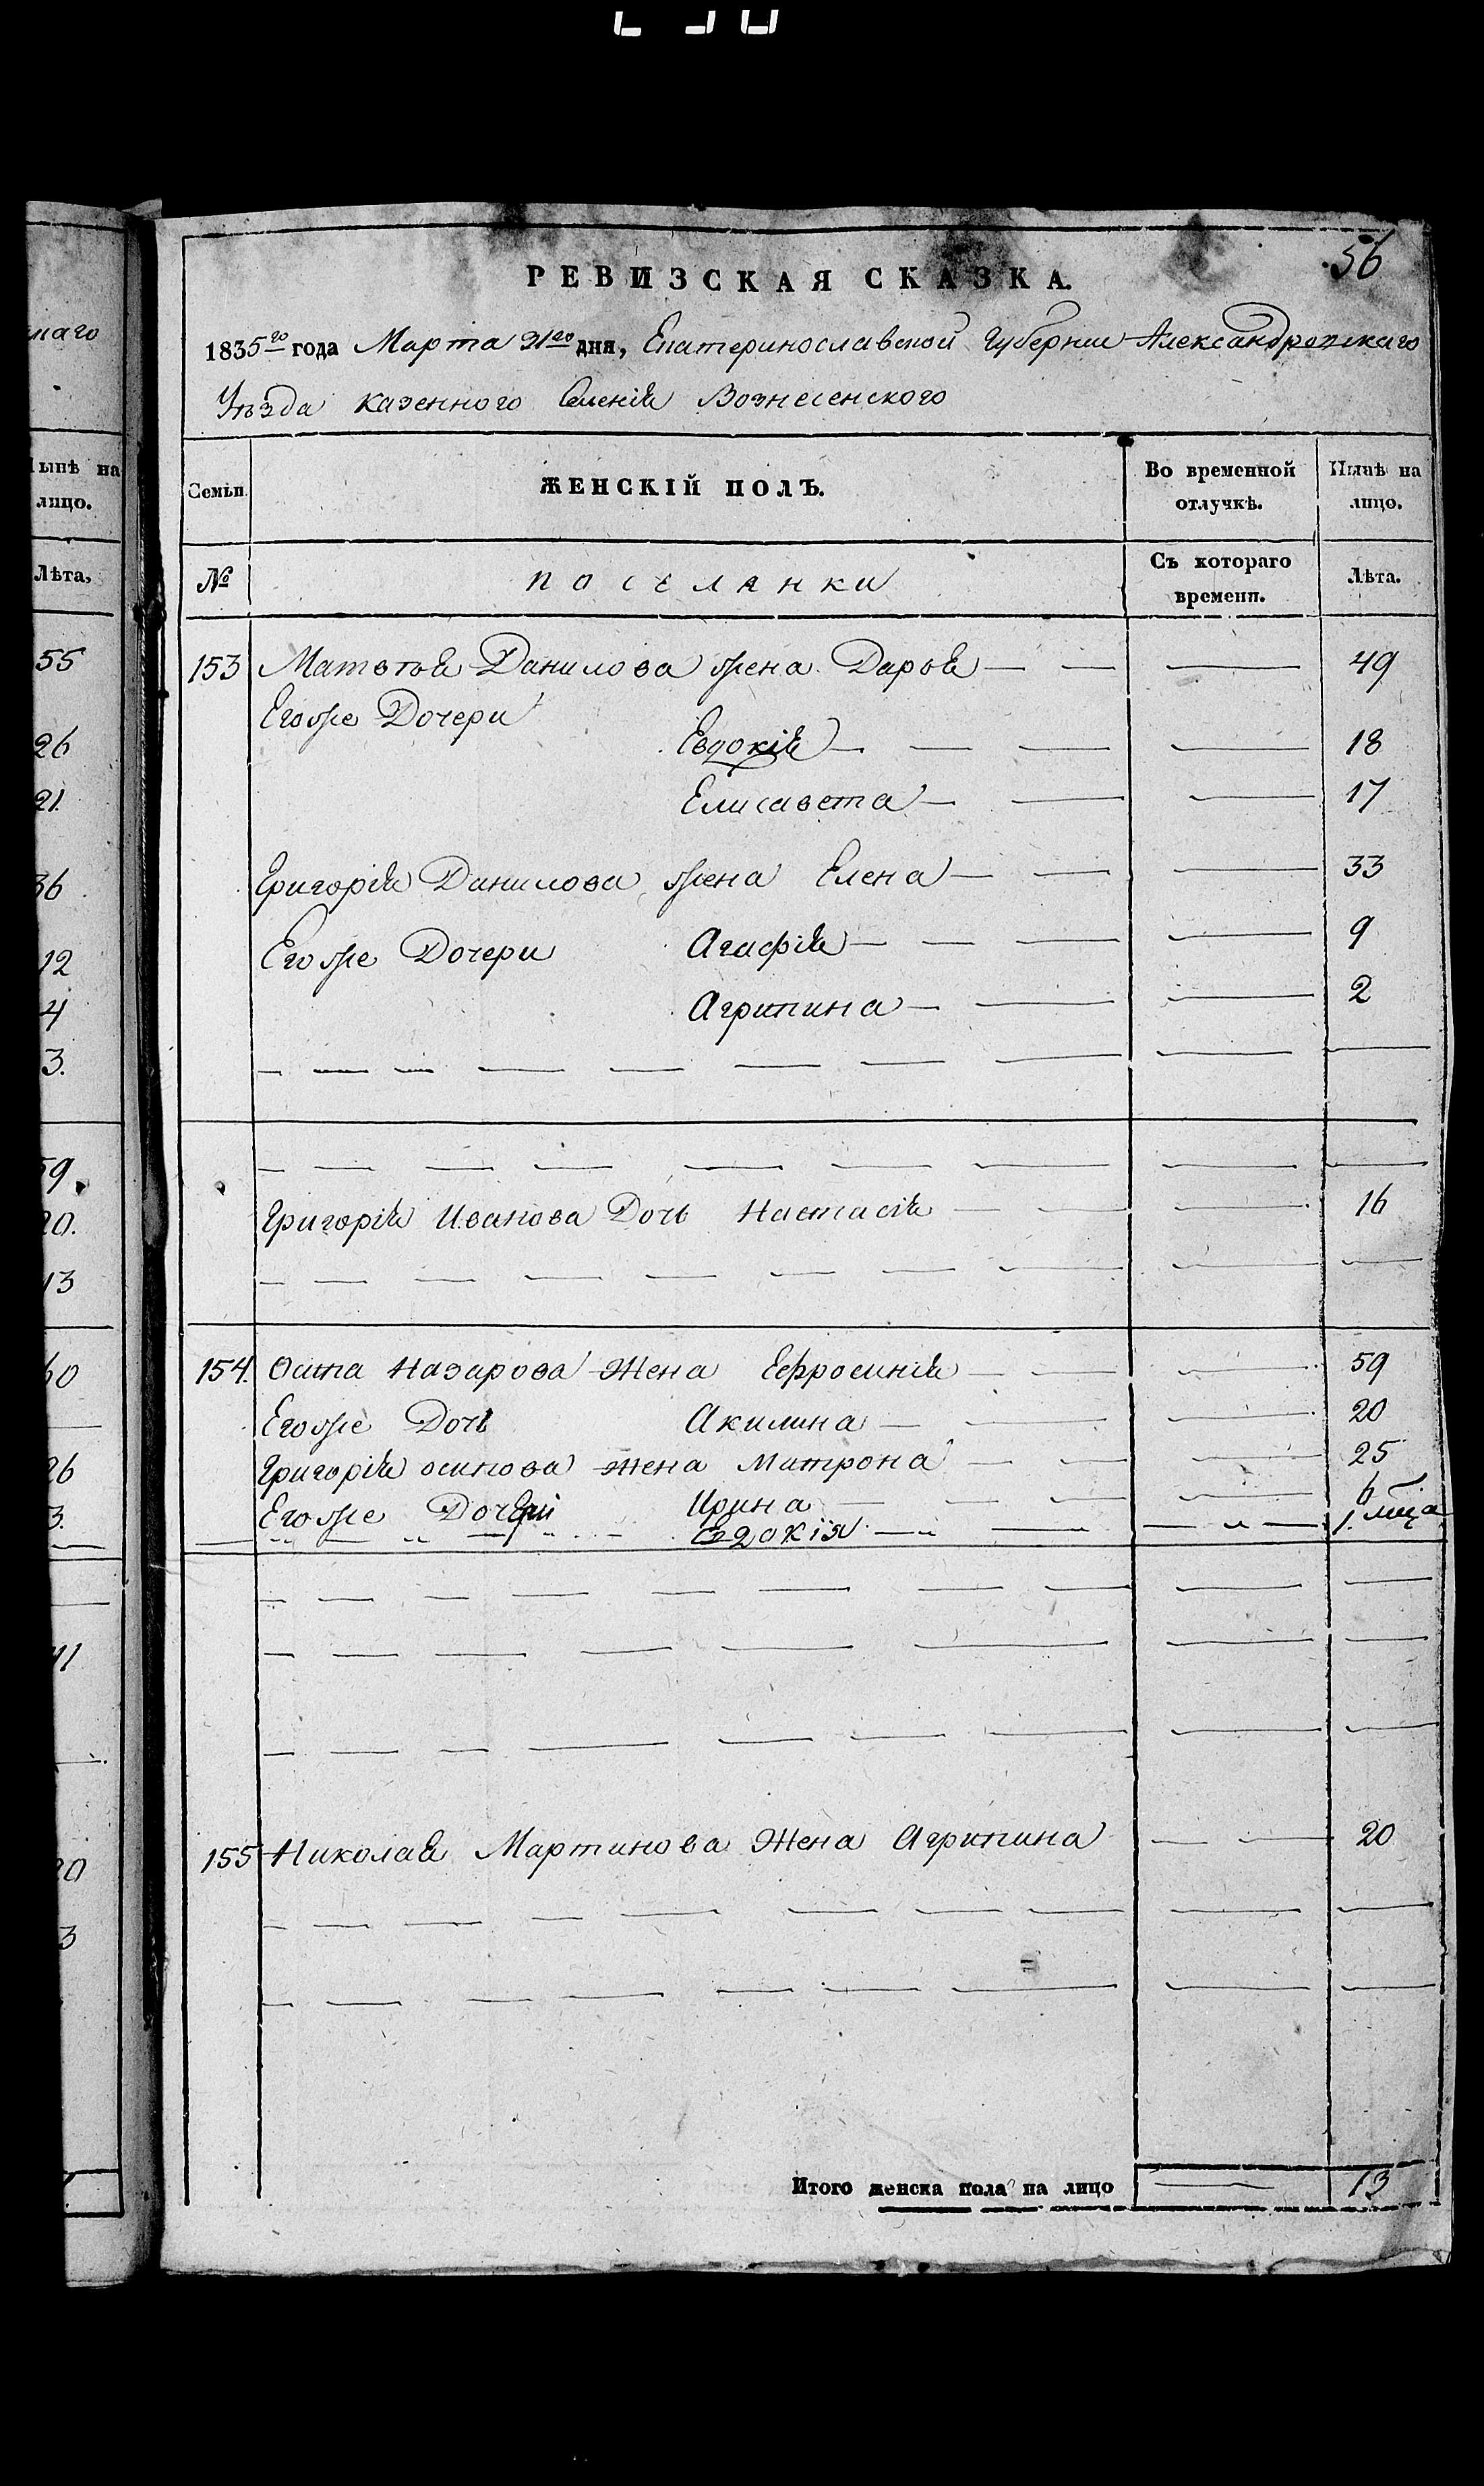 наго
56
РЕВИЗСКАЯ СКАЗКА.
1835го года Марта 31го дня, Екатеринославской Губернии Александровскаго
Уѣзда казенного Селенія Вознесенского
Нынѣ на лицо.
Семьи
ЖЕНСКІЙ ПОЛЪ.
Во временной отлучкѣ.
Нынѣ на лицо.
Лѣта,
№
поселянки
Съ котораго времени.
Лѣта.
55
153 Матвѣя Данилова жена Дарья 49
Егоже Дочери
26
Евдокія 18
21
Елисавета 17
36
Григорія Данилова жена Елена 33
12
Егоже Дочери Агафія 9
4
Агрипина 2
3.
59
20.
Григорія Иванова Дочь Настасія 16
13
60
154. Осипа Назарова Жена Ефросинія 59
Егоже Дочь Акилина 20
26
Григорія осипова жена Матрона 25
3.
Егоже Дочери Ирина 6
Евдокія 1. мца
41
155 Николая Мартинова Жена Агрипина 20
20
3
Итого женска пола на лицо 13